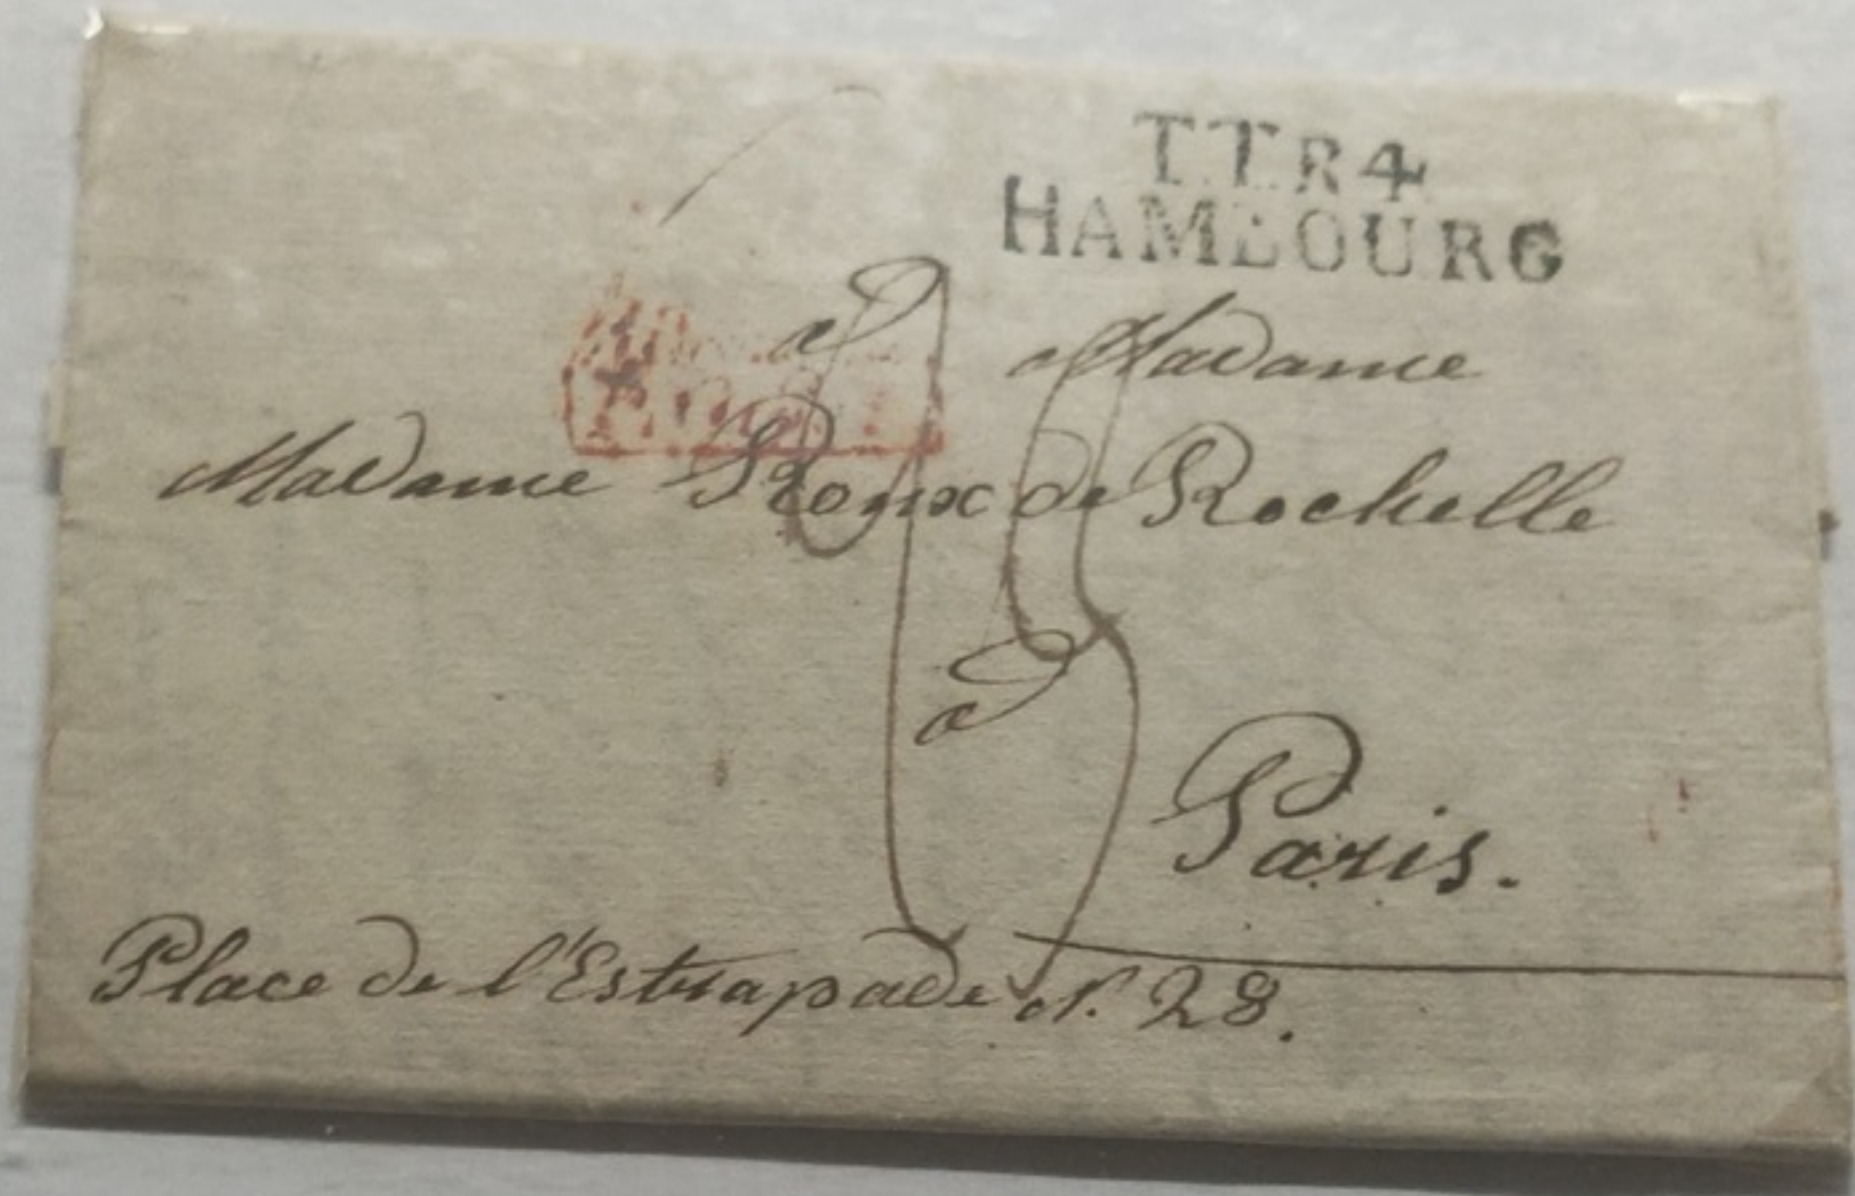 T.T.R.4
HAMBOURG
à Madame
Madame Roux de Rochelle
à
Paris.
Place de l'Estrapade N. 28.